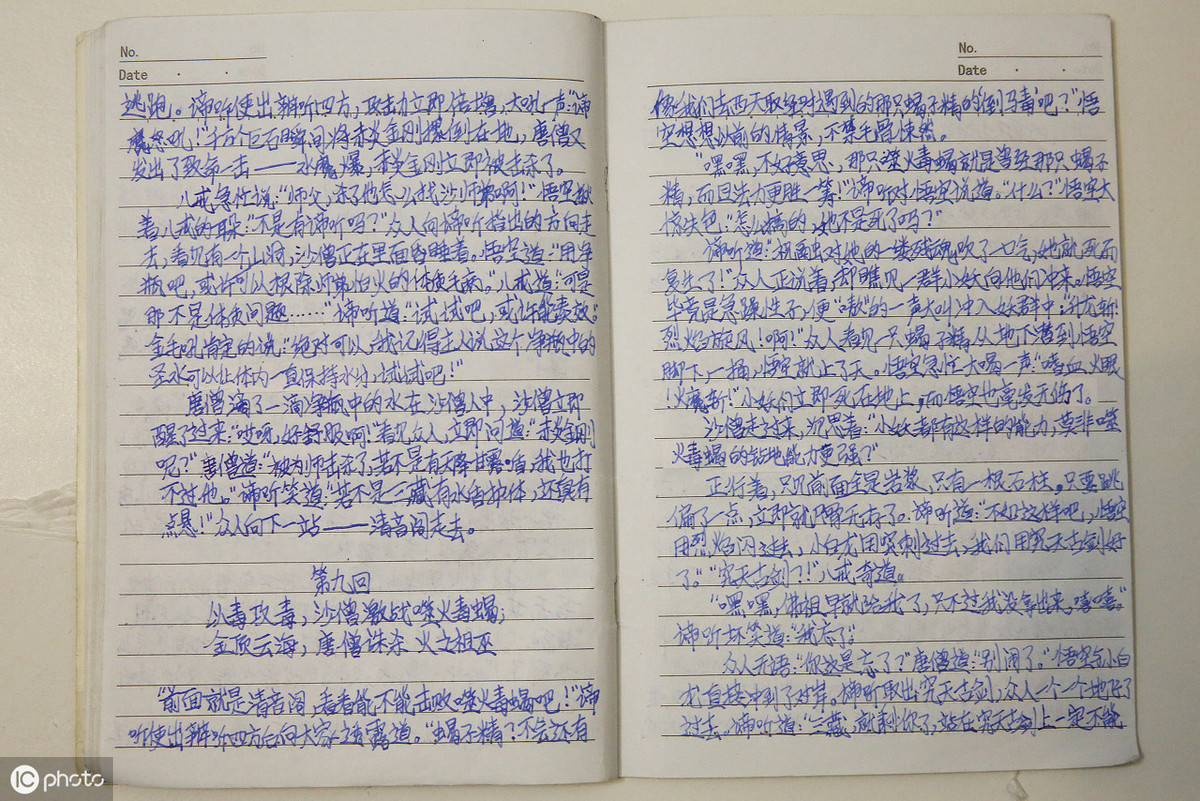 No.
Date
逃跑。谛听使出辨听四方,攻击力立即倍增,大吼一声:"谛
怒吼!"千万个巨石瞬间将赤炎金刚撂倒在地,唐僧又
发出了致命一击——水魔爆,赤炎金刚立即被击杀了。
八戒急忙说:"师父,杀了他怎么找沙师弟啊!"悟空揪
着八戒的耳朵:"不是有谛听吗?"众人向谛听指出的方向走
去,看见有一个山洞,沙僧正在里面昏睡着。悟空道:"用净
瓶吧,或许可以根除师弟怕火的体质毛病。"八戒道:"可是
那不是体质问题……"谛听道:"试试吧,或许能奏效。"
金毛吼肯定的说:"绝对可以,我记得主人说这个净瓶中的
圣水可以让体内一直保持水分,试试吧!"
唐僧滴了一滴净瓶中的水在沙僧人中,沙僧立即
醒了过来:"哎呀,好舒服啊!"看见众人,立即问道:"赤炎金刚
呢?"唐僧道:"被为师击杀了,若不是有天降甘露盾,我也打
不过他。"谛听笑道:"若不是三藏有水盾护体,还真有
点悬!"众人向下一站——清音阁走去。
第九回
以毒攻毒,沙僧激战噬火毒蝎;
金顶云海,唐僧诛杀火之祖巫
"前面就是清音阁,看看能不能击败噬火毒蝎吧!"谛
听使出辨听四方后向大家透露道。"蝎子精?不会还有
No.
Date
像我们去西天取经时遇到的那只蝎子精的倒马毒吧?"悟
空想想以前的情景,不禁毛骨悚然。
"嘿嘿,不好意思,那只噬火毒蝎就是曾经那只蝎子
精,而且法力更胜一筹!"谛听对悟空说道。"什么?"悟空大
惊失色:"怎么搞的,她不是死了吗?"
谛听道:"祝融对她的一缕残魂吹了一口气,她就死而
复生了!"众人正说着,却瞧见一群小妖向他们冲来。悟空
毕竟是急躁性子,便"嗷"的一声大叫冲入妖群中:"升龙斩!
烈焰旋风!啊!"众人看见一只蝎子精从地下遁到悟空
脚下,一捅,悟空就上了天。悟空急忙大喝一声:"嗜血火眼
!火魔斩!"小妖们立即死在地上,而悟空也毫发无伤了。
沙僧走过来,沉思着:"小妖都有这样的能力,莫非噬
火毒蝎的钻地能力更强?"
正行着,只见前面全是岩浆,只有一根石柱。只要跳
偏了一点,立即就尸骨无存了。谛听道:"不如这样吧,悟空
用烈焰闪过去,小白龙用突刺过去,我们用究天古剑好
了。""究天古剑?!"八戒奇道。
"嘿嘿,佛祖早就给我了,只不过我没拿出来,嘻嘻。"
谛听坏笑道:"我忘了。"
众人无语:"你这是忘了?"唐僧道:"别闹了。"悟空与小白
龙直接冲到了对岸。谛听取出究天古剑,众人一个一个地
过去。谛听道:"三藏,就剩你了,站在究天古剑上一定不能
IC photo